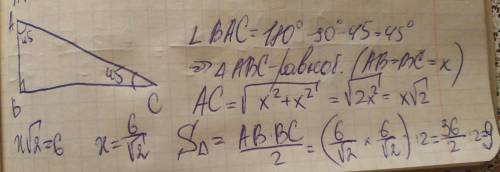 A
45
45
B
C
∠BAC=180°-90°-45=45°
⇒ △ABC-равноб. (AB=BC=x)
AC=√x²+x² = √2x² = x√2
x√2=6 x=6/√2 S△=AB·BC/2=(6/√2 × 6/√2):2=36/2:2=9